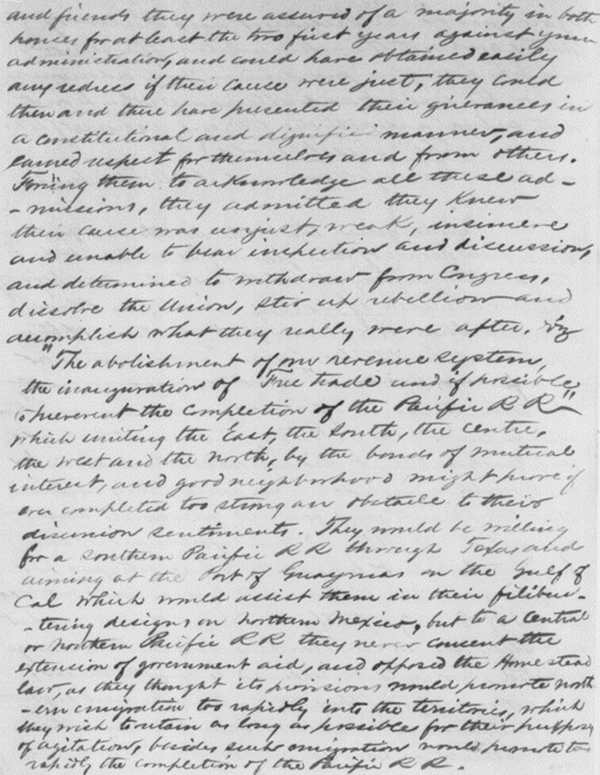 and friends they were assured of a majority in both
houses for at least the two first years against your
administration, and could have obtained easily
any redress if their cause were just, they could
then and there have presented their grievances in
a constitutional and dignified manner, and
earned respect for themselves and from others.
Forcing them to acknowledge all these ad-
-missions, they admitted they knew
their cause was unjust, weak, insincere
and unable to bear inspection and discussion,
and determined to withdraw from Congress,
dissolve the Union, stir up rebellion and
accomplish what they really were after. viz
"The abolishment of our revenue system,
the inauguration of Free trade and if possible
to prevent the completion of the Pacific R R"
which uniting the East, the South, the Centre,
the West and the North, by the bonds of mutual
interest, and good neighborhood might prove if
ever completed too strong an obstacle to their
disunion sentiments. They would be willing
for a southern Pacific R R through Texas and
aiming at the Port of Guaymas on the Gulf of
Cal which would assist them in their filibus-
-tering designs on Northern Mexico, but to a Central
or Northern Pacific R R they never consent the
extension of government aid, and opposed the Homestead
law, as they thought its provisions would promote north
-ern emigration too rapidly into the territories, which
they wish to retain as long as possible for their purposes
of agitation, besides such emigration would promote too
rapidly the completion of the Pacific R R.